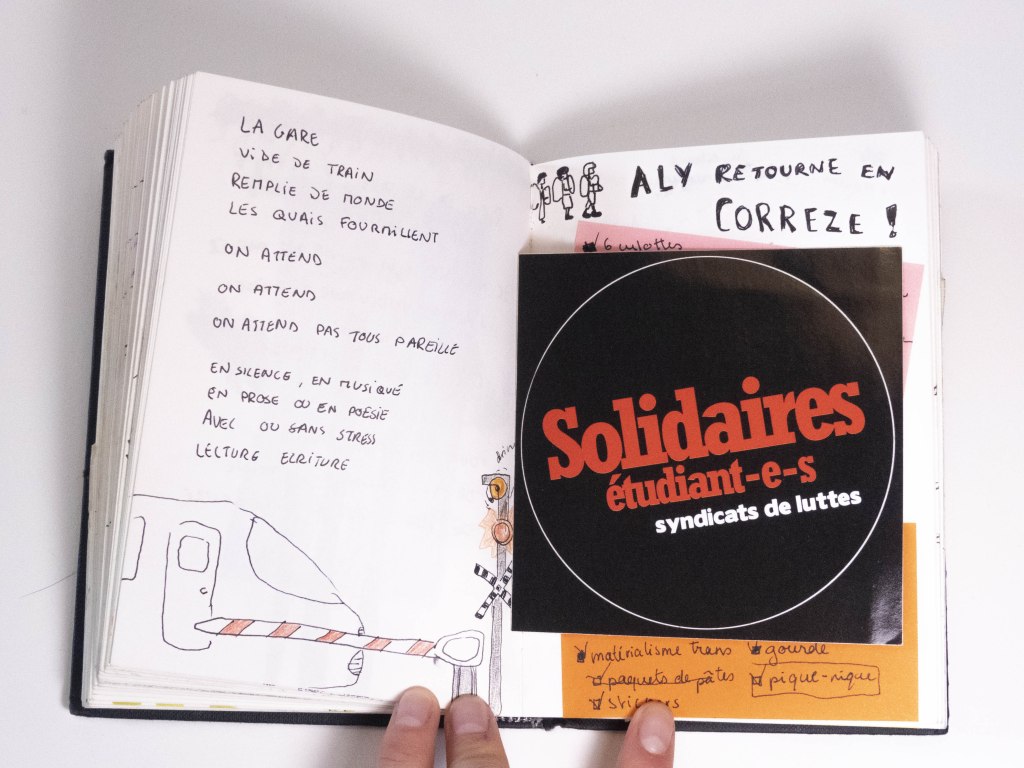 LA GARE
VIDE DE TRAIN
REMPLIE DE MONDE
LES QUAIS FOURMILLENT
ON ATTEND
ON ATTEND
ON ATTEND PAS TOUS PAREILLE
EN SILENCE, EN MUSIQUE
EN PROSE OU EN POÉSIE
AVEC OU SANS STRESS
LECTURE ECRITURE
ALY RETOURNE EN
CORREZE !
6 culottes
Solidaires
étudiant-e-s
syndicats de luttes
matérialisme trans gourde
paquets de pâtes pique-nique
stickers